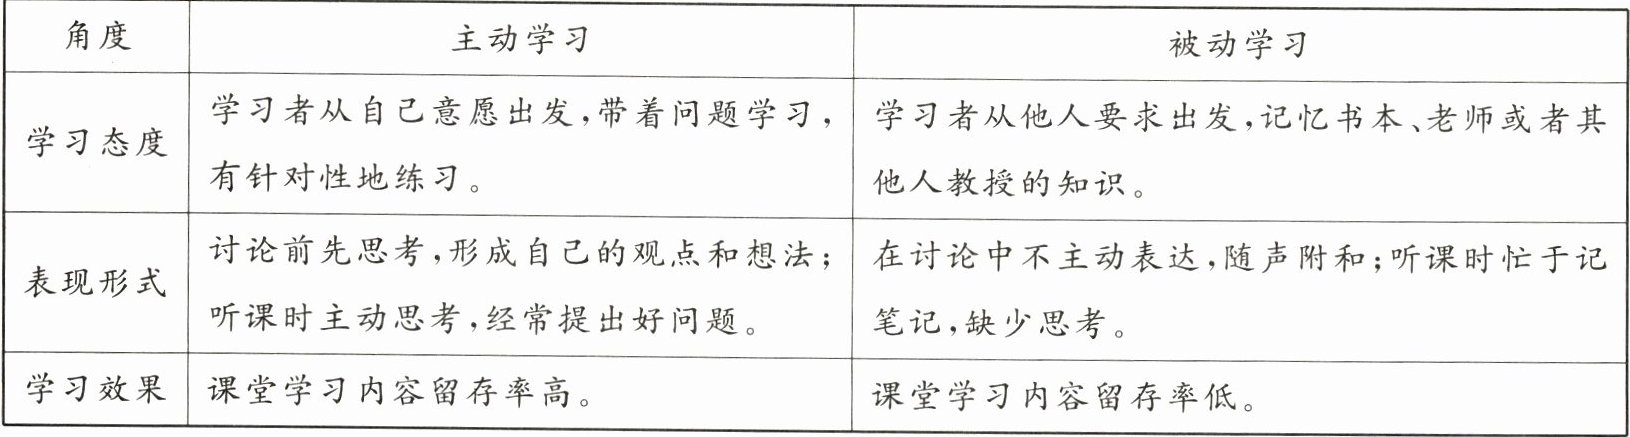 角度 主动学习 被动学习
学习态度
学习者从自己意愿出发,带着问题学习,
有针对性地练习。
学习者从他人要求出发,记忆书本、老师或者其
他人教授的知识。
表现形式
讨论前先思考,形成自己的观点和想法;
听课时主动思考,经常提出好问题。
在讨论中不主动表达,随声附和;听课时忙于记
笔记,缺少思考。
学习效果 课堂学习内容留存率高。 课堂学习内容留存率低。